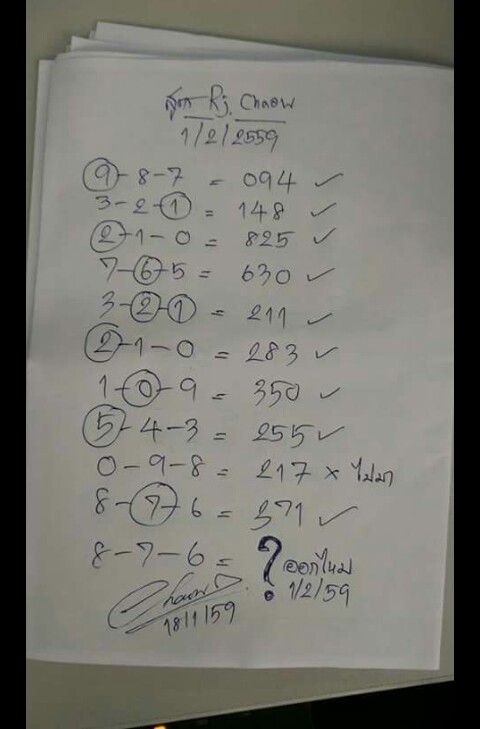 สูตร Rj. Chaow
1/2/2559
9-8-7 = 094 ✓
3-2-1 = 148 ✓
2-1-0 = 825 ✓
7-6-5 = 630 ✓
3-2-1 = 211 ✓
2-1-0 = 283 ✓
1-0-9 = 350 ✓
5-4-3 = 255 ✓
0-9-8 = 217 × ไม่มา
8-7-6 = 371 ✓
8-7-6 = ? ออกไหม
1/2/59
Chaow
18/1/59